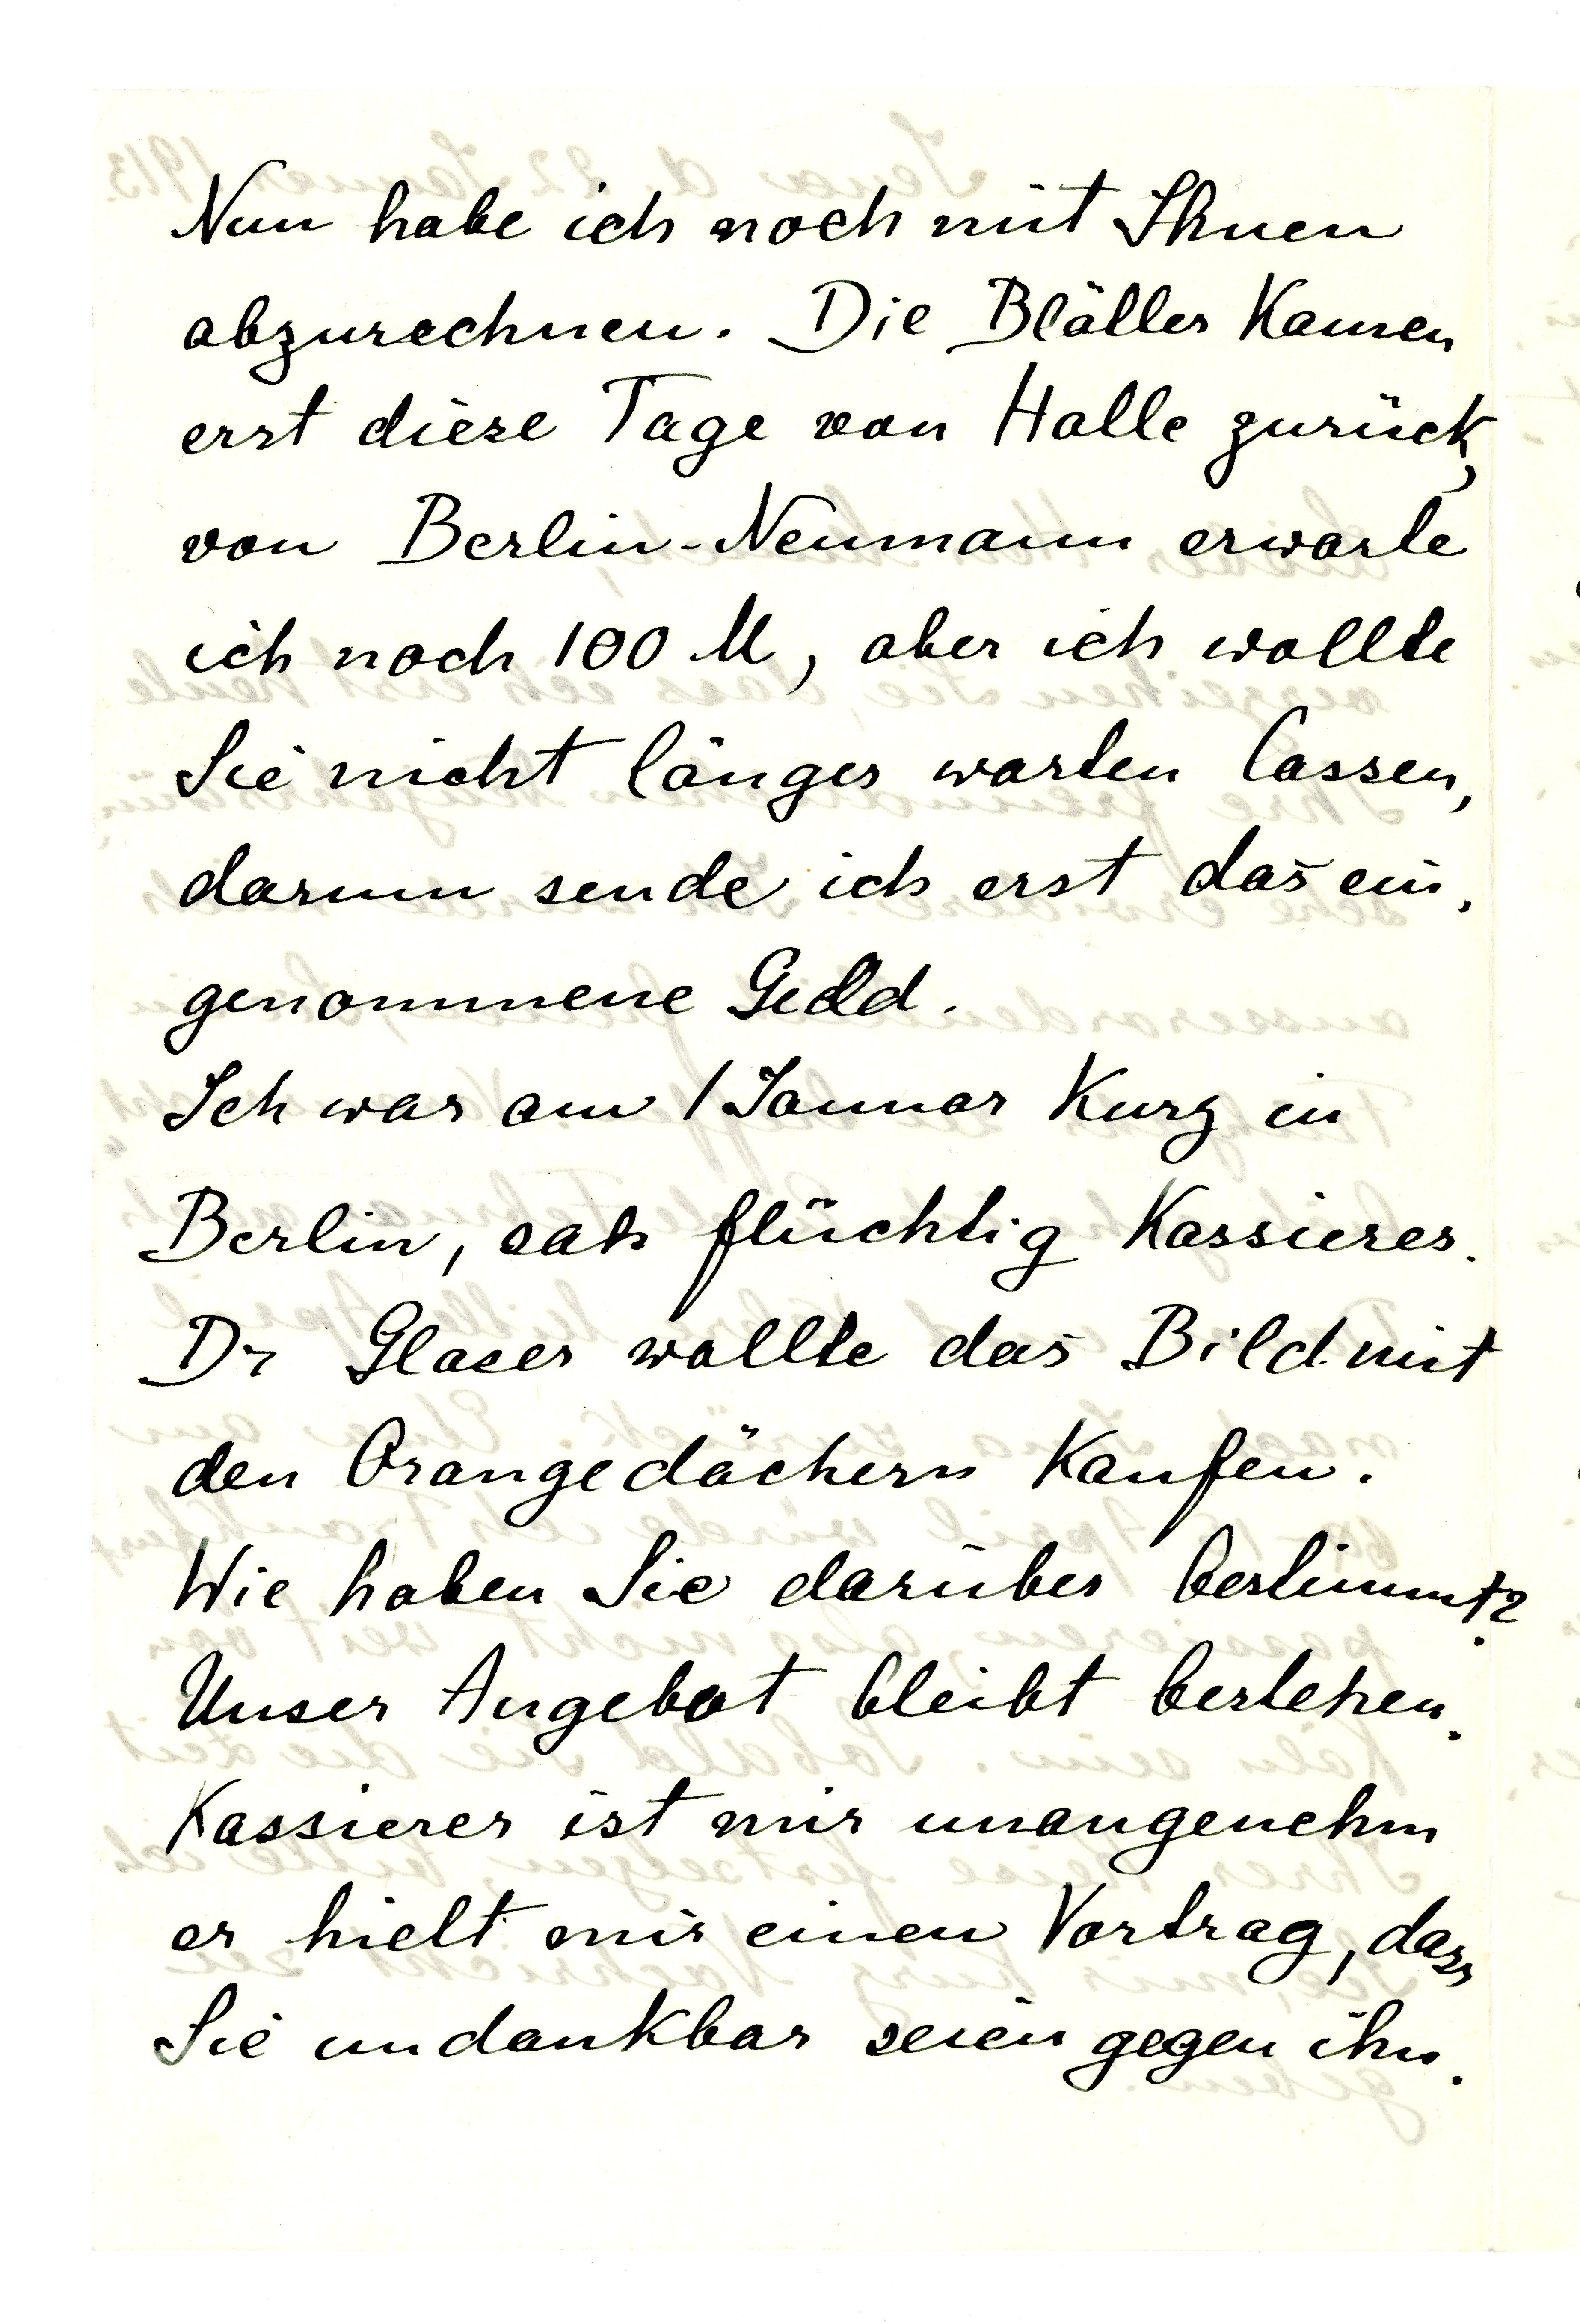 Nun habe ich noch mit Ihnen
abzurechnen. Die Blätter kamen
erst diese Tage von Halle zurück,
von Berlin-Neumann erwarte
ich noch 100 M, aber ich wollte
Sie nicht länger warten lassen,
darum sende ich erst das ein-
genommene Geld.
Ich war am 1 Januar kurz in
Berlin, sah flüchtig Kassierer.
Dr Glaser wollte das Bild mit
den Orangedächern kaufen.
Wie haben Sie darüber bestimmt?
Unser Angebot bleibt bestehen.
Kassierer ist mir unangenehm
er hielt mir einen Vortrag, dass
Sie undankbar seien gegen ihn.